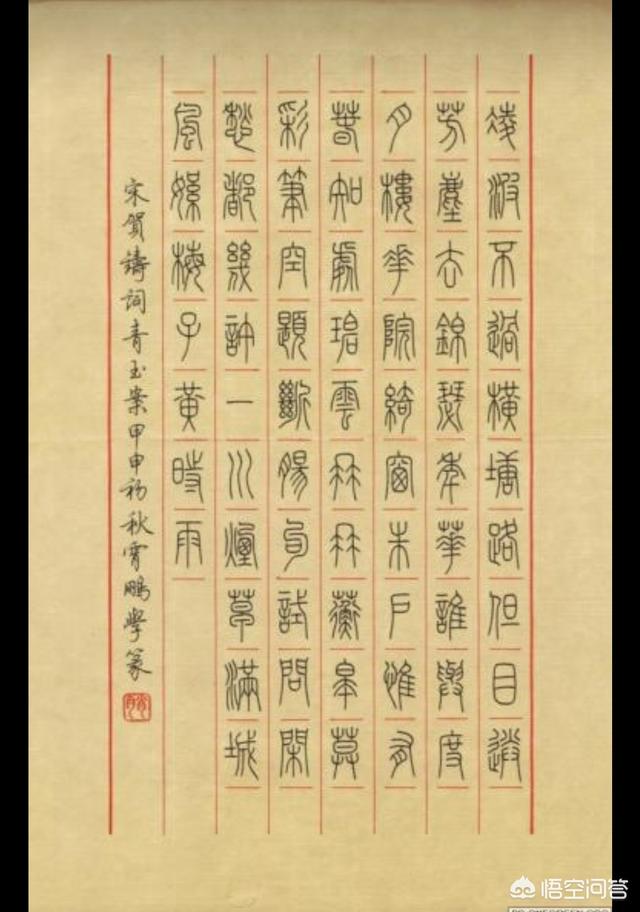 凌波不過橫塘路但目送
芳塵去錦瑟年華誰與度
月樓花院綺窗朱戶惟有
春知處碧雲冉冉蘅皋暮
彩筆空題斷腸句試問閑
愁都幾許一川煙草滿城
風絮梅子黃時雨
宋賀鑄詞青玉案甲申初秋霄鵬學篆
悟空问答